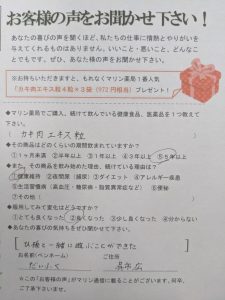 お客様の声をお聞かせ下さい!
あなたの喜びの声を聞くほど、私たちの仕事に情熱とやりがいを
与えてくれるものはありません。いいこと・悪いこと、どんなこ
とでもです。ぜひ、あなた様の声をお聞かせ下さい。
※お持ちいただきますと、もれなくマリン薬局1番人気
「カキ肉エキス粒4粒×3袋(972円相当)プレゼント!
◆マリン薬局でご購入、続けて飲んでいる健康食品、医薬品を1つ教えて
下さい。
( カキ肉エキス粒 )
◆その商品はどのくらいの期間飲まれていますか?
①1ヶ月未満 ②半年以上 ③1年以上 ④3年以上 ⑤5年以上
◆また、その商品を飲み始めた理由、続けている理由は?
①健康維持 ②夜間尿(頻尿) ③ダイエット ④アレルギー疾患
⑤生活習慣病(高血圧・糖尿病・脂質異常症など) ⑥便秘
⑦その他( )
◆服用してみて変化はどうですか?
①とても良くなった ②良くなった ③少し良くなった ④分からない
◆あなたの喜びの気持ちをぜひ聞かせて下さい。
[ 孫達と一緒に遊ぶことができた ]
お名前(ペンネーム) ご住所
だいふく 呉市広
☆この「お客様の声」がマリン通信に載ることがございます。何卒、
ご了承下さいませ。